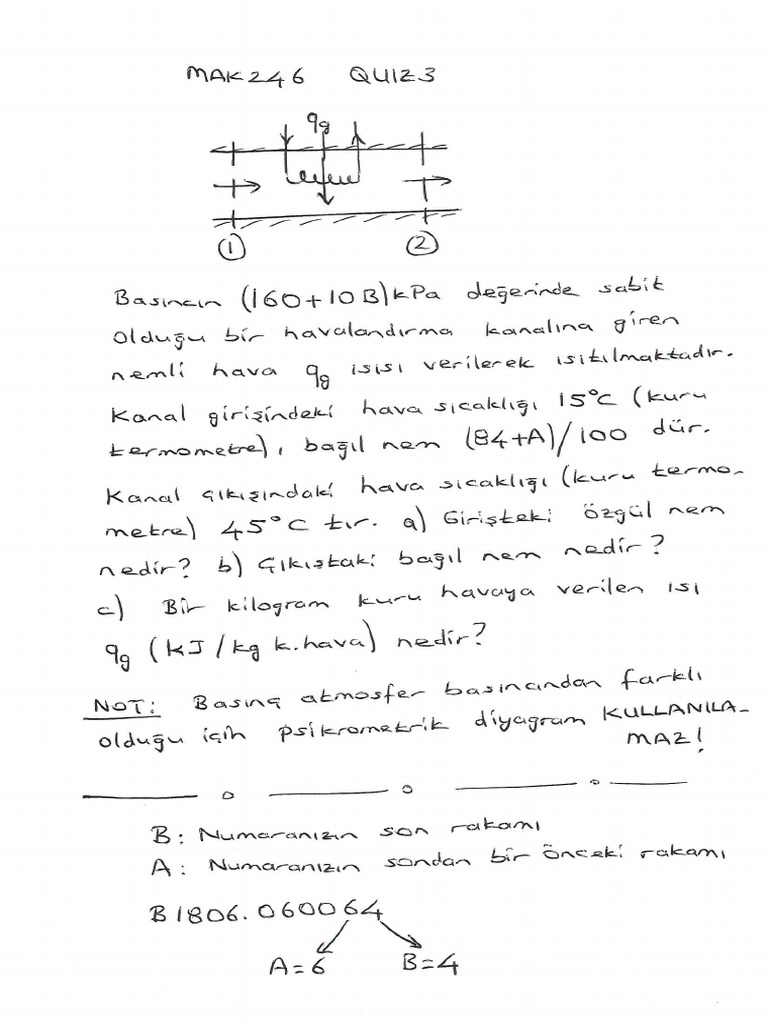 MAK246 QUIZ3
qg
1 2
Basıncın (160+10B)kPa değerinde sabit
olduğu bir havalandırma kanalına giren
nemli hava qg ısısı verilerek ısıtılmaktadır.
Kanal girişindeki hava sıcaklığı 15°C (kuru
termometre), bağıl nem (84+A)/100 dür.
Kanal çıkışındaki hava sıcaklığı (kuru termo-
metre) 45°C tır. a) Girişteki özgül nem
nedir? b) Çıkıştaki bağıl nem nedir?
c) Bir kilogram kuru havaya verilen ısı
qg (kJ/kg k.hava) nedir?
NOT: Basınç atmosfer basıncından farklı
olduğu için psikrometrik diyagram KULLANILA-
MAZ!
B: Numaranızın son rakamı
A: Numaranızın sondan bir önceki rakamı
B1806.060064
A=6 B=4